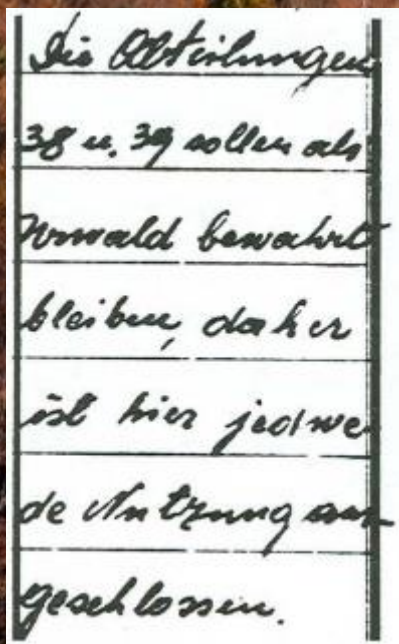 Die Abteilungen
38 u. 39 sollen als
Urwald bewahrt
bleiben, daher
ist hier jedwe
de Nutzung aus-
geschlossen.